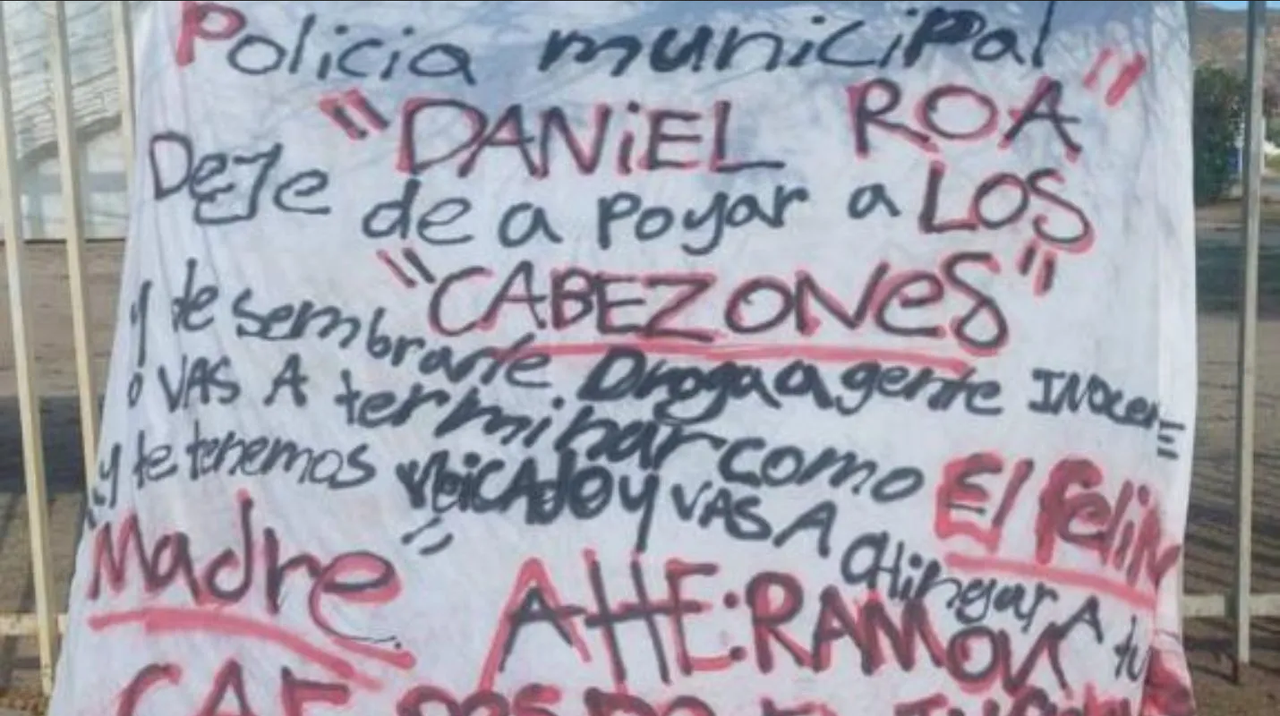 Policia municipal
"DANiEL ROA"
Deje de a poyar a LOS
"CABEZONeS"
y de sembrarle Droga a gente INocente
o VAS A terminar como El felin
y te tenemos ubicado y VAS A CHingar A tu
Madre
AHE:RAMOV